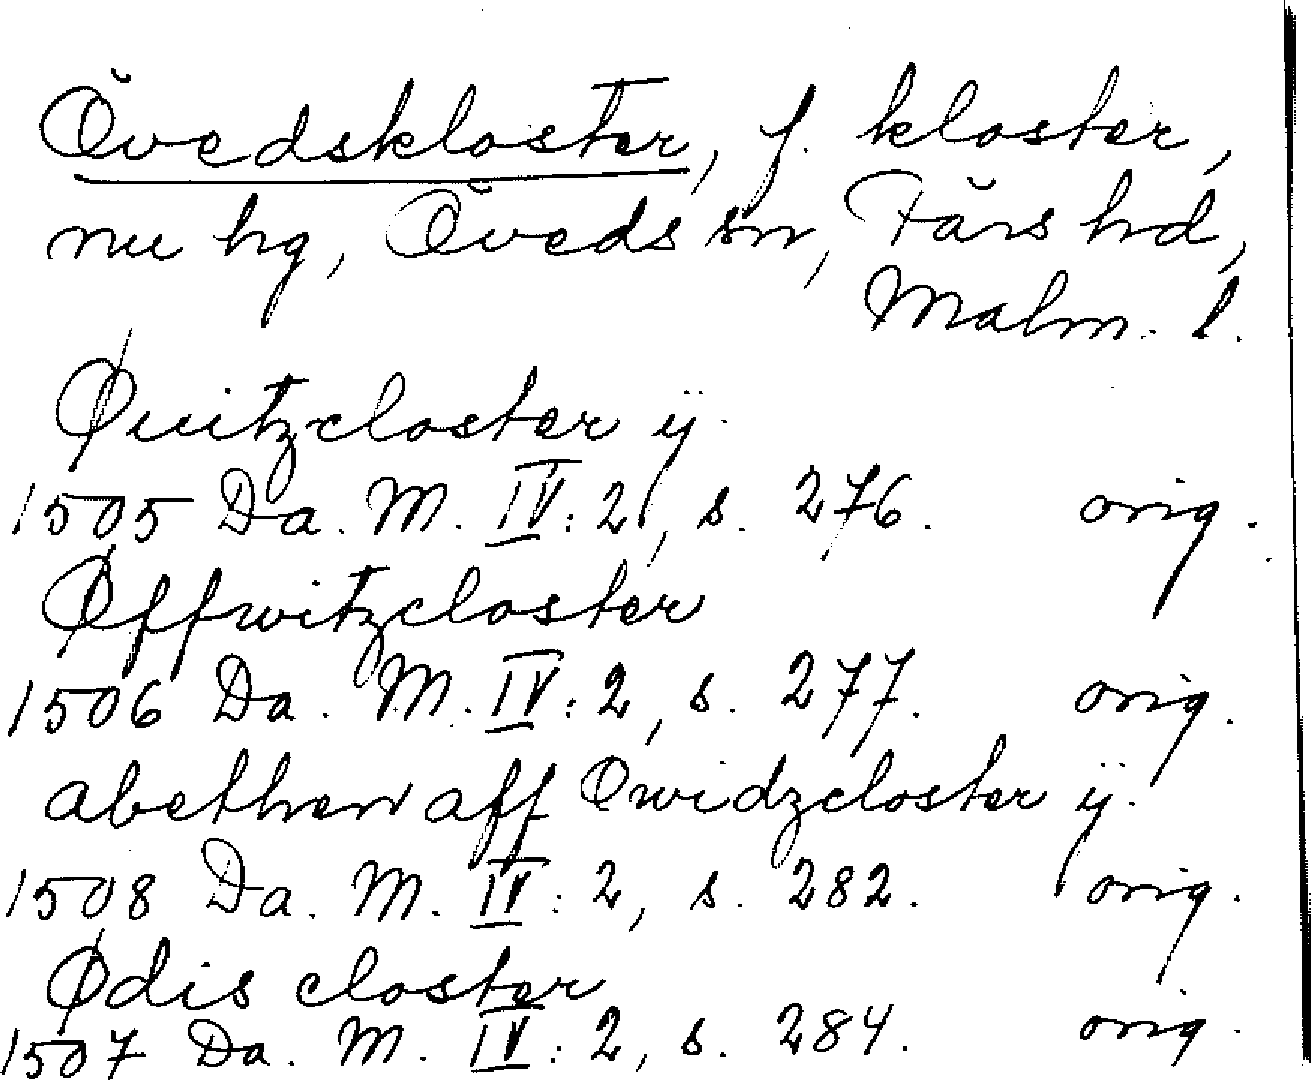 Övedskloster, f. kloster,
nu hg, Öveds sn, Färs hd,
Malm. l.
Øuitzcloster ÿ.
1505 Da. M. IV: 2, s. 276. orig.
Øffwitzcloster
1506 Da. M. IV: 2, s. 277. orig.
abethen aff Owidzcloster ÿ.
1508 Da. M. IV: 2, s. 282. orig.
Ødis closter
1507 Da. M. IV: 2, s. 284. orig.